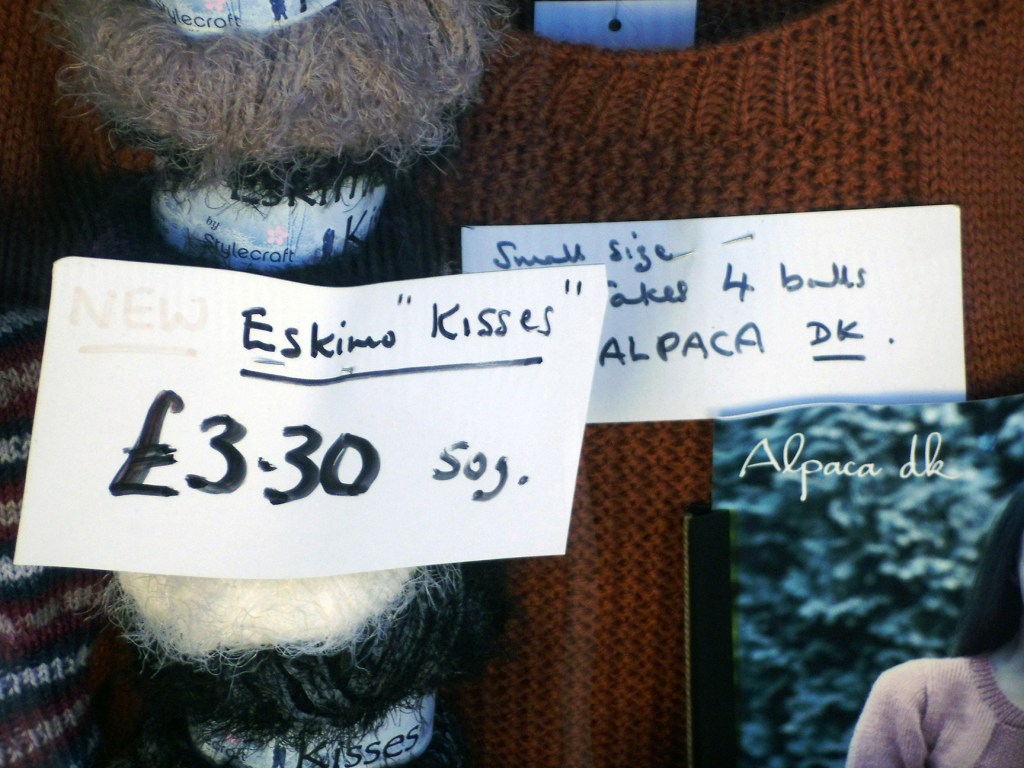 Stylecraft
ESKIMO
Ki
by
Stylecraft
Small size
takes 4 balls
ALPACA DK.
NEW
Eskimo "Kisses"
£3.30 50g.
Alpaca dk
Kisses